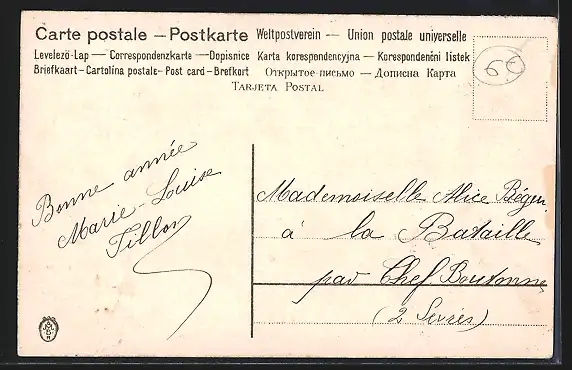 Carte postale — Postkarte Weltpostverein — Union postale universelle
Levelező-Lap — Correspondenzkarte — Dopisnice Karta korespondencyjna — Korespondenční lístek
Briefkaart – Cartolina postale – Post card – Brefkort Открытое письмо — Дописна Карта
Tarjeta Postal
60
Bonne année
Marie-Louise
Fillon
Mademoiselle Alice Bégu
à la Bataille
par Chef Boutonne
(2 Sevres)